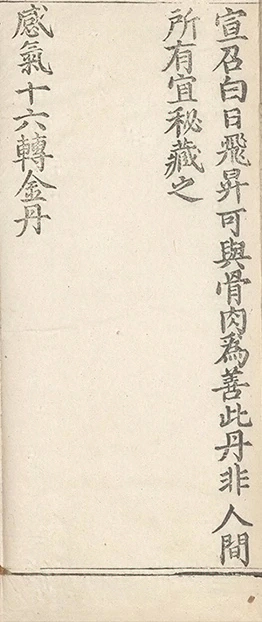 宣召白日飛昇可與骨肉為善此丹非人間
所有宜秘藏之
感氣十六轉金丹